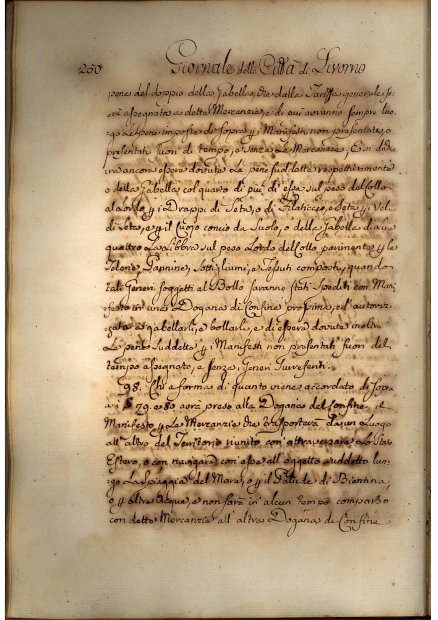 250 Giornale della Città di Livorno
pene del doppio della Gabella, che dalla Tariffa generale, sa-
rà assegnata a dette Mercanzie, e di più avranno sempre luo-
go le pene imposte di sopra p i Manifesti non presentati, o
presentati fuori di tempo, e senza le Mercanzie, E si di-
rà ancora essere dovute le pene suddette respettivamente
o della Gabella col quarto di più di essa sul peso del Collo
a Lordo p i Drappi di Seta, o di Filaticcio, e Seta, p Veli
di Seta, e p il Cuoio concio da Suolo, o della Gabella di Lire
quattro La Libbra sul peso Lordo del Collo parimente p le
Telerie, Pannine, Sottigliumi, e Tessuti composti, quando
tali Generi soggetti al Bollo saranno stati Spediti con Mani-
festo in una Dogana di Confine prossima, ed autoriz-
zata a gabellarli, e bollarli, e di essere dovute inoltre
Le pene Suddette p i Manifesti non presentati fuori del
tempo assegnato, e senza i Generi Surreferiti.
98. Chi a forma di quanto viene accordato di Sopra
ai § 79. e 80 avrà preso alla Dogana del Confine il
Manifesto p Le Mercanzie che trasporterà da un Luogo
all'altro del Territorio riunito con attraversare Lo Stato
Estero, o con navigare con esse all'oggetto suddetto lun-
go La Spiaggia del Mare, o p il Palude di Bientina,
o p altre Acque, e non sarà in alcun tempo comparso
con dette Mercanzie all'altra Dogana di Confine